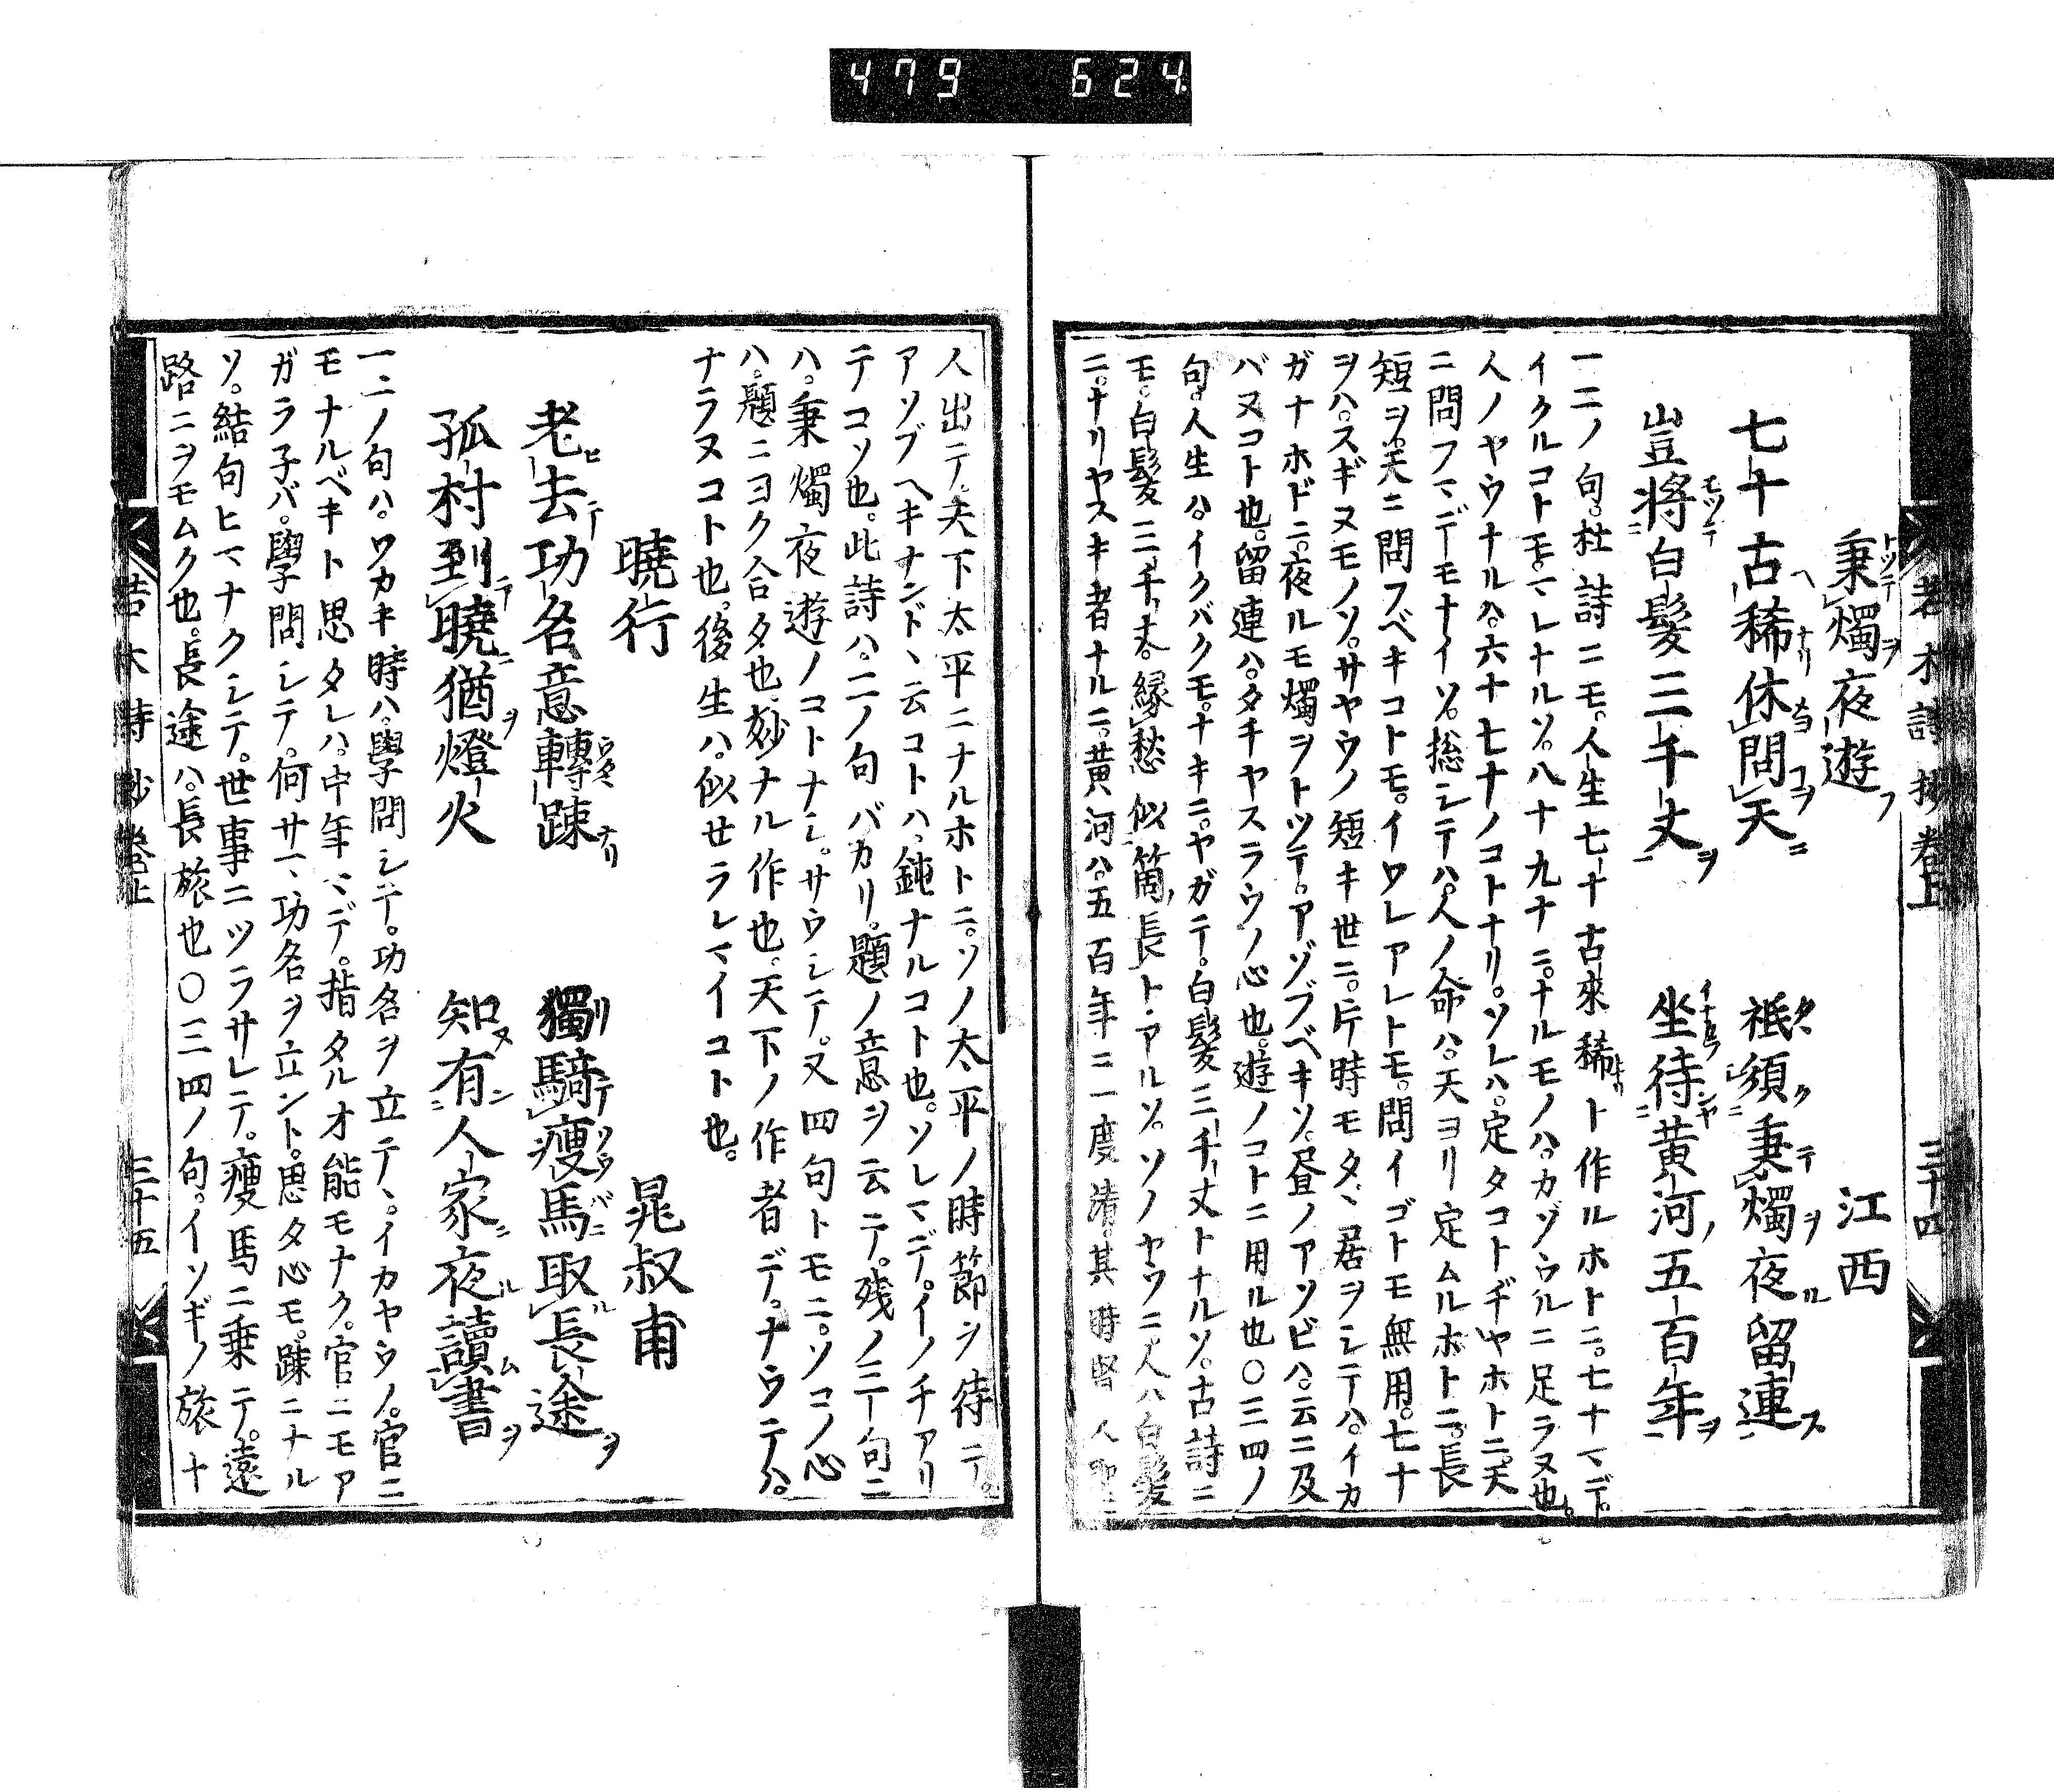 479 624
若木詩抄卷上 三十四
秉燭夜遊 江西
七十古稀休問天 祗須秉燭夜留連
豈將白髮三千丈 坐待黃河五百年
一二ノ句。杜詩ニモ。人生七十古來稀ト作ルホトニ。七十マデ。
イクルコトモ。マレナルソ。八十九十ニ。ナルモノハ。カゾウルニ足ラヌ也。
人ノヤウナルハ。六十七十ノコトナリ。ソレハ。定タコトヂヤホトニ。天
ニ問フマデモナイソ。総シテハ。人ノ命ハ。天ヨリ定ムルホトニ。長
短ヲ。天ニ問フベキコトモ。イワレアレトモ。問イゴトモ無用。七十
ヲハ。スギヌモノソ。サヤウノ短キ世ニ。片時モタヾ居ヲシテハ。イカ
ガナホドニ。夜ルモ燭ヲトツテ。アソブベキソ。昼ノアソビハ。云ニ及
バヌコト也。留連ハ。タチヤスラウノ心也。遊ノコトニ用ル也〇三四ノ
句。人生ハ。イクバクモ。ナキニ。ヤガテ。白髮三千丈トナルソ。古詩ニ
モ。白髮三千丈。縁愁似箇長トアルソ。ソノヤウニ人ハ白髮
ニ。ナリヤスキ者ナルニ。黄河ハ。五百年ニ一度清。其時聖人
人出テ。天下太平ニナルホトニ。ソノ太平ノ時節ヲ待テ。
アソブヘキナンドヽ云コトハ。鈍ナルコト也。ソレマデ。イノチアリ
テコソ也。此詩ハ。二ノ句バカリ。題ノ意ヲ云テ。残ノ三句ニ
ハ。秉燭夜遊ノコトナシ。サウシテ。又四句トモニ。ソコノ心
ハ。題ニヨク合タ也。妙ナル作也。天下ノ作者デ。ナウテハ。
ナラヌコト也。後生ハ。似セラレマイコト也。
曉行 晁叔甫
老去功名意轉疎 獨騎瘦馬取長途
孤村到曉猶燈火 知有人家夜讀書
一二ノ句ハ。ワカキ時ハ。學問シテ。功名ヲ立テヽ。イカヤウノ。官ニ
モナルベキト思タレハ。中年マデ。指タルオ能モナク。官ニモア
ガラ子バ。學問シテ。何サマ功名ヲ立ント。思タ心モ。疎ニナル
ソ。結句ヒマナクシテ。世事ニツラサレテ。瘦馬ニ乗テ。遠
路ニヲモムク也。長途ハ。長旅也〇三四ノ句。イソギノ旅ナ
若木詩抄卷上 三十五